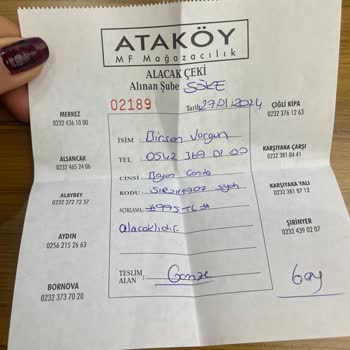 ATAKÖY
MF Mağazacılık
ALACAK ÇEKİ
Alınan Şube SÖKE
02189
Tarih 27.01.2024
MERKEZ
0232 436 10 08
ALSANCAK
0232 465 24 06
ALAYBEY
0232 372 72 37
AYDIN
0256 215 26 63
BORNOVA
0232 373 70 20
İSİM Bircan Vurgun
TEL 0542 369 01 00
CİNSİ Bayan Çanta
KODU siyah
AÇIKLAMA #995 TL#
alacaklıdır.
TESLİM ALAN : Gamze
6 ay
ÇİĞLİ KİPA
0232 376 12 63
KARŞIYAKA ÇARŞI
0232 381 04 41
KARŞIYAKA YALI
0232 381 87 12
ŞİRİNYER
0232 439 02 07